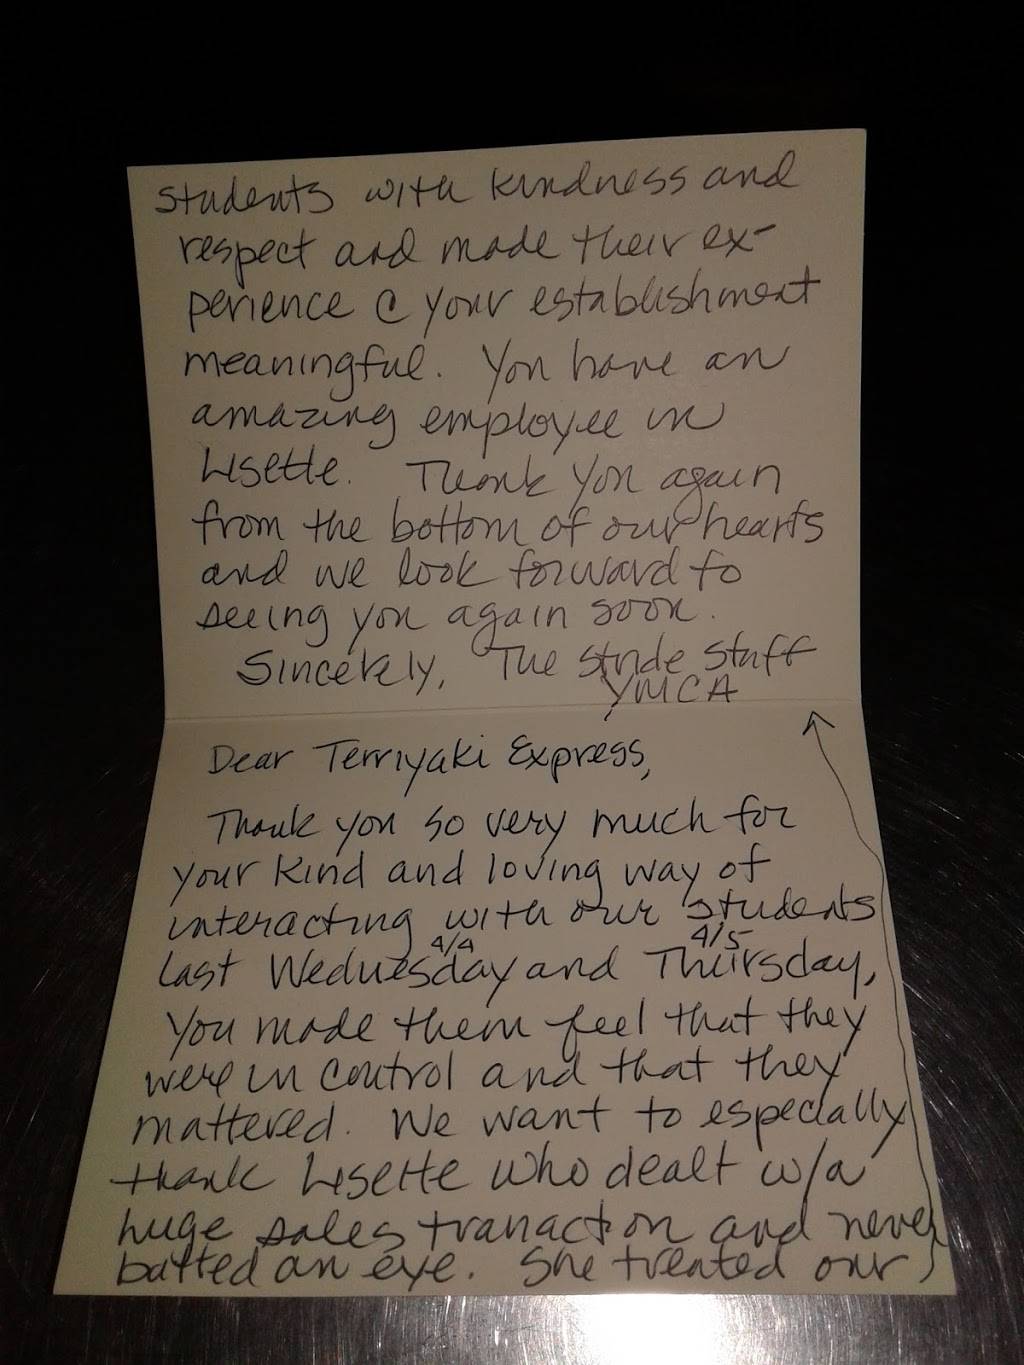 Dear Terriyaki Express,
Thank you so very much for
your kind and loving way of
interacting with our students
4/4 4/5
last Wednesday and Thursday,
You made them feel that they
were in control and that they
mattered. We want to especially
thank Lisette who dealt w/a
huge sales tranaction and never
batted an eye. She treated our
students with kindness and
respect and made their ex-
perience @ your establishment
meaningful. You have an
amazing employee in
Lisette. Thank you again
from the bottom of our hearts
and we look forward to
seeing you again soon.
Sincerely, The Stride Staff
YMCA